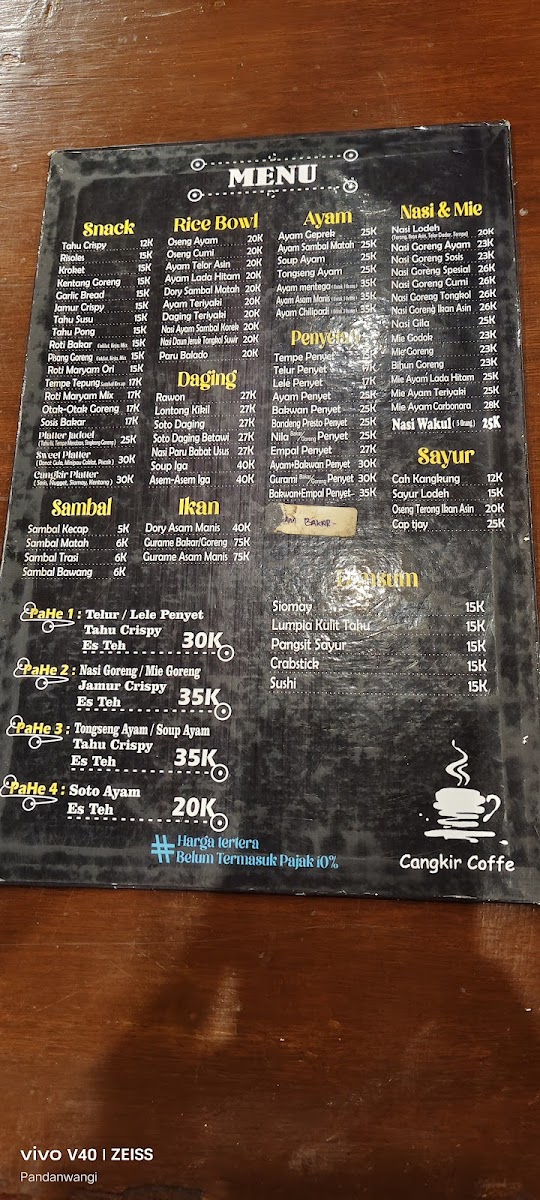 MENU
Snack
Tahu Crispy 12K
Risoles 15K
Kroket 15K
Kentang Goreng 15K
Garlic Bread 15K
Jamur Crispy 15K
Tahu Susu 15K
Tahu Pong 15K
Roti Bakar 15K
Pisang Goreng 15K
Roti Maryam Ori 15K
Tempe Tepung 17K
Roti Maryam Mix 17K
Otak-Otak Goreng 17K
Sosis Bakar 17K
Platter Jadoel 25K
Sweet Platter
Cangkir Platter
(Sosis, Nugget, Siomay, Kentang) 30K
Rice Bowl
Oseng Ayam 20K
Oseng Cumi 20K
Ayam Telor Asin 20K
Ayam Lada Hitam 20K
Dory Sambal Matah 20K
Ayam Teriyaki 20K
Daging Teriyaki 20K
Nasi Ayam Sambal Korek 20K
Nasi Daun Jeruk Tongkol Suwir 20K
Paru Balado 20K
Daging
Rawon 27K
Lontong Kikil 27K
Soto Daging 27K
Soto Daging Betawi 27K
Nasi Paru Babat Usus 27K
Soup Iga 40K
Asem-Asem Iga 40K
Ayam
Ayam Geprek 25K
Ayam Sambal Matah 25K
Soup Ayam 25K
Tongseng Ayam 25K
Ayam mentega 35K
Ayam Asam Manis 35K
Ayam Chilipadi 35K
Penyetan
Tempe Penyet
Telur Penyet 17K
Lele Penyet 17K
Ayam Penyet 25K
Bakwan Penyet 25K
Bandeng Presto Penyet 25K
Nila Bakar/Goreng Penyet 25K
Empal Penyet 27K
Ayam+Bakwan Penyet 30K
Gurami Bakar/Goreng Penyet 30K
Bakwan+Empal Penyet 35K
BAKAR
Nasi & Mie
Nasi Lodeh 20K
Nasi Goreng Ayam 23K
Nasi Goreng Sosis 23K
Nasi Goreng Spesial 26K
Nasi Goreng Cumi 26K
Nasi Goreng Tongkol 26K
Nasi Goreng Ikan Asin 26K
Nasi Gila 25K
Mie Godok 23K
Mie Goreng 23K
Bihun Goreng 23K
Mie Ayam Lada Hitam 25K
Mie Ayam Teriyaki 25K
Mie Ayam Carbonara 28K
Nasi Wakul (5 Orang) 25K
Sayur
Cah Kangkung 12K
Sayur Lodeh 15K
Oseng Terong Ikan Asin 20K
Cap tjay 25K
Sambal
Sambal Kecap 5K
Sambal Matah 6K
Sambal Trasi 6K
Sambal Bawang 6K
Ikan
Dory Asam Manis 40K
Gurame Bakar/Goreng 75K
Gurame Asam Manis 75K
Siomay 15K
Lumpia Kulit Tahu 15K
Pangsit Sayur 15K
Crabstick 15K
Sushi 15K
PaHe 1 : Telur / Lele Penyet
Tahu Crispy
Es Teh 30K
PaHe 2 : Nasi Goreng / Mie Goreng
Jamur Crispy
Es Teh 35K
PaHe 3 : Tongseng Ayam / Soup Ayam
Tahu Crispy
Es Teh 35K
PaHe 4 : Soto Ayam
Es Teh 20K
# Harga tertera
Belum Termasuk Pajak 10%
Cangkir Coffe
vivo V40 | ZEISS
Pandanwangi